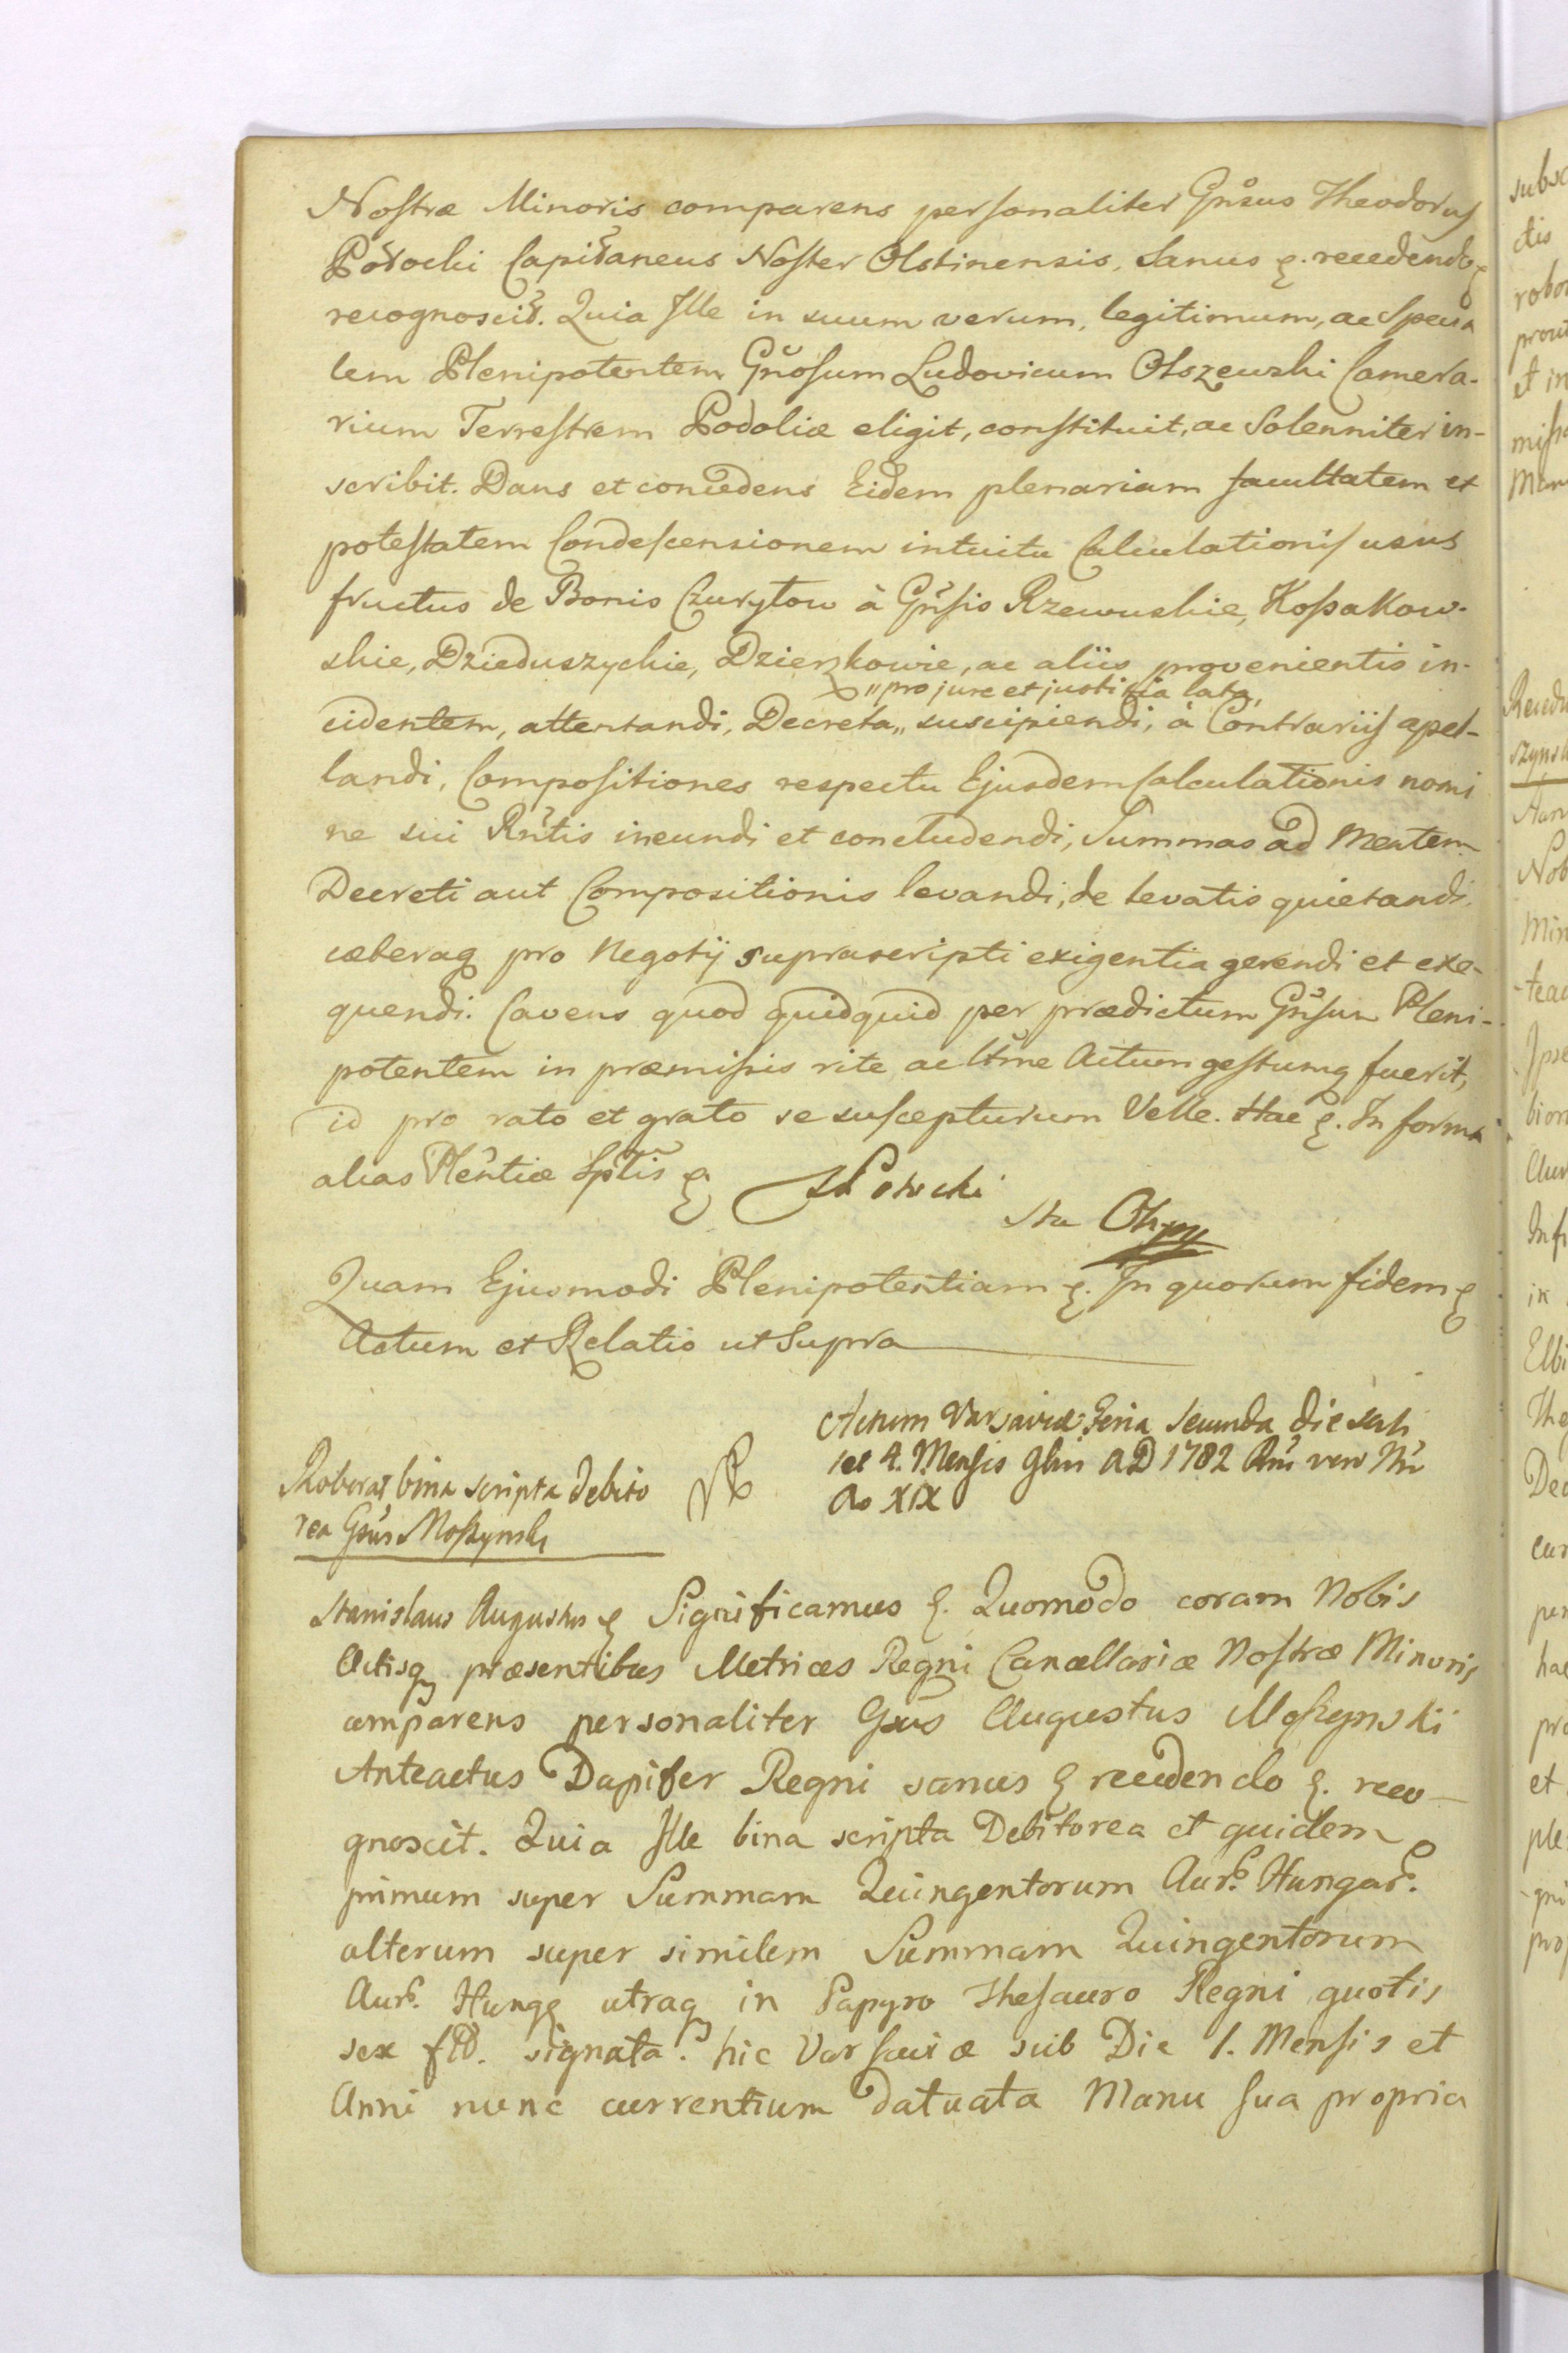 Nostræ Minoris comparens personaliter Gnsus Theodorus
Potocki Capitaneus Noster Olstinensis, Sanus &. recedendo &
recognoscit. Quia Ille in suum verum, legitimum, ac Specia
lem Plenipotentem Gnosum Ludovicum Olszewski Camera-
rium Terrestrem Podoliæ eligit, constituit, ac Solenniter in-
scribit. Dans et concedens Eidem plenariam facultatem et
potestatem Condescensionem intuitu Calculationis usus
fructus de Bonis Czurytow à Gnsis Rzewuskie, Kossakow-
skie, Dzieduszyckie, Dzierzkowie, ac aliis provenientis in-
„pro jure et justitia lata,
cidentem, attentandi, Decreta„ suscipiendi, à Contrariis apel-
landi, Compositiones respectu Ejusdem Calculationis nomi
ne sui Rntis ineundi et concludendi, Summas ad Mentem
Decreti aut Compositionis levandi, de levatis quietandi,
cæteraq pro Negotij suprascripti exigentia gerendi et exe-
quendi. Cavens quod quidquid per prædictum Gnsum Pleni-
potentem in præmissis rite ac ltme Actum gestumq fuerit,
id pro rato et grato se suscepturum Velle. Hac &. In forma
alias Plentiæ Sptis &
Potocki
Quam Ejusmodi Plenipotentiam &. In quorum fidem &
Actum et Relatio ut Supra
Actum Varsaviæ Feria Secunda die scili
cet 4. Mensis 9bris AD 1782 Rni vero Nri
Ao XIX
Roborat bina scripta debito
rea Gsus Moszynski
Stanislaus Augustus & Significamus &. Quomodo coram Nobis
Actisq præsentibus Metrices Regni Cancellariæ Nostræ Minoris
comparens personaliter Gsus Augustus Moszynski
Anteactus Dapifer Regni sanus & recedendo &. reco-
gnoscit. Quia Ille bina scripta Debitorea et quidem
primum super Summam Quingentorum Aur. Hungar.
alterum super similem Summam Quingentorum
Aur. Hung& utraq in Papyro Thesauro Regni quotis
sex fld. signata. hic Varsaviæ sub Die 1. Mensis et
Anni nunc currentium datuata Manu sua propria